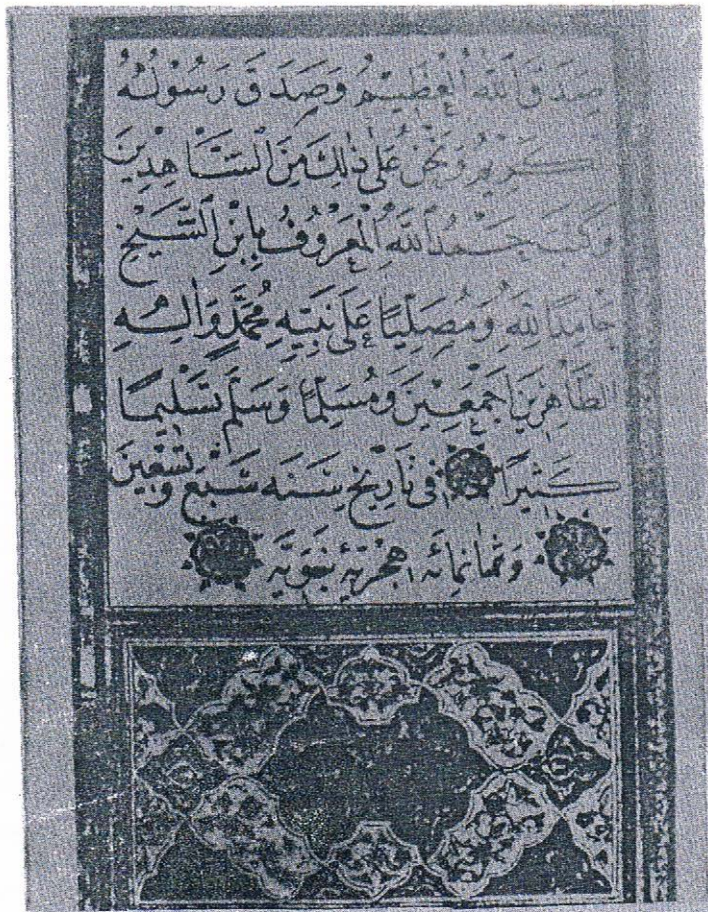 صَدَقَ ٱللّٰهُ ٱلْعَظِيمُ وَصَدَقَ رَسُولُهُ
كَرِيمُ وَنَحْنُ عَلٰى ذٰلِكَ مِنَ ٱلشَّاهِدِينَ
وَكَتَبَ حَمْدُ ٱللّٰهِ ٱلْمَعْرُوفُ بِابْنِ ٱلشَّيْخِ
حَامِدًا لِلّٰهِ وَمُصَلِّيًا عَلٰى نَبِيِّهِ مُحَمَّدٍ وَاٰلِهِ
ٱلطَّاهِرِينَ اَجْمَعِينَ وَمُسَلِّمًا وَسَلَّمَ تَسْلِيمًا
كَثِيرًا فِى تَارِيخِ سَنَه سَبْعَ وَتِسْعِينَ
وَثَمَانمِائَه هِجْرِيَّة نَبَوِيَّه